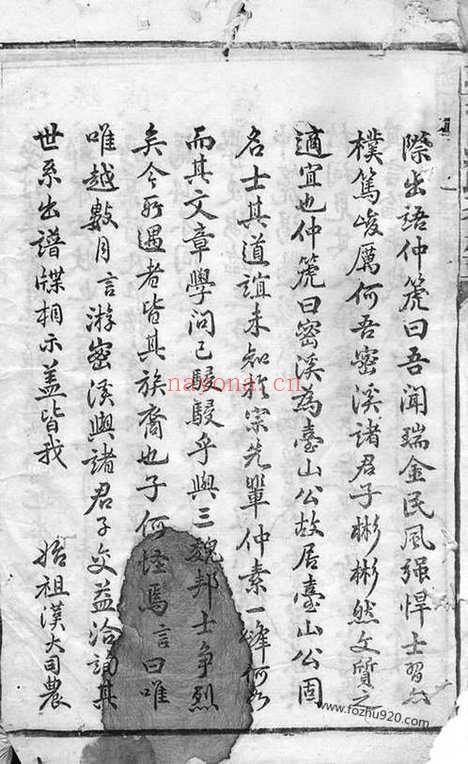 際出語仲箎曰吾聞瑞金民風强悍士習
樸篤峻厲何吾密溪諸君子彬彬然文質之
適宜也仲箎曰密溪為臺山公故居臺山公固
名士其道誼未知於宗先輩仲素一峰何如
而其文章學問已駸駸乎與三魏邦士争烈
矣今所遇者皆其族裔也子何怪焉言曰唯
唯越數月言游密溪與諸君子交益洽詢其
世系出譜牒相示蓋皆我　始祖漢大司農
nayona.cn
www.fozhu920.com